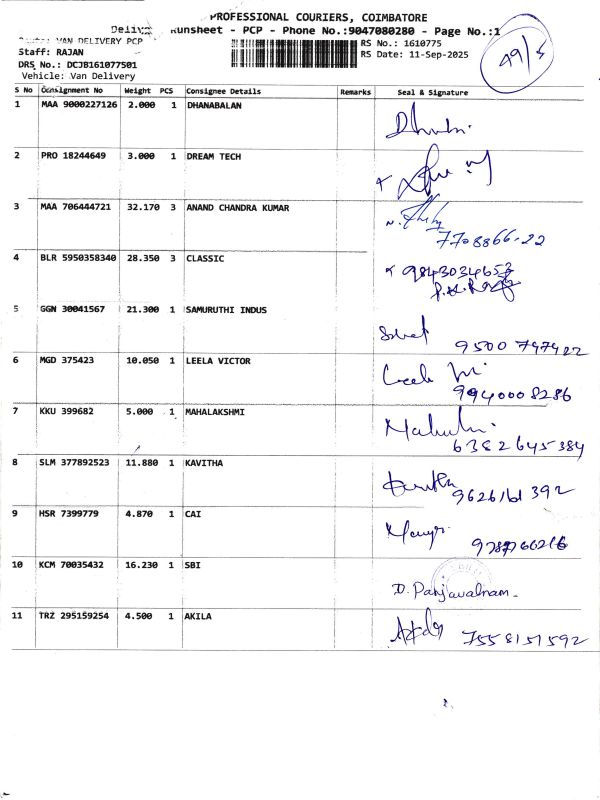 PROFESSIONAL COURIERS, COIMBATORE
Runsheet - PCP - Phone No.:9047080280 - Page No.:1
VAN DELIVERY PCP
RS No.: 1610775
Staff: RAJAN
RS Date: 11-Sep-2025
DRS No.: DCJB161077501
Vehicle: Van Delivery
49/5
S No Consignment No Weight PCS Consignee Details Remarks Seal & Signature
1 MAA 9000227126 2.000 1 DHANABALAN
2 PRO 18244649 3.000 1 DREAM TECH
3 MAA 706444721 32.170 3 ANAND CHANDRA KUMAR
7708866-22
4 BLR 5950358340 28.350 3 CLASSIC
9843034653
5 GGN 30041567 21.300 1 SAMURUTHI INDUS
9500747422
6 MGD 375423 10.050 1 LEELA VICTOR
9940008286
7 KKU 399682 5.000 1 MAHALAKSHMI
6382645384
8 SLM 377892523 11.880 1 KAVITHA
9626161392
9 HSR 7399779 4.870 1 CAI
10 KCM 70035432 16.230 1 SBI
11 TRZ 295159254 4.500 1 AKILA
7558151592